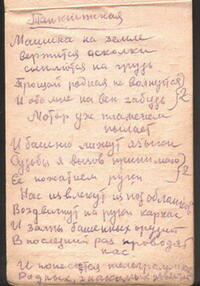 Танкистская
Машина на земле
вертится осколки
сыплются на грудь
Прощай родная не волнуйся } 2
И обо мне на век забудь
Мотор уж пламенем
пылает
И башню лижут огоньки
Судьбы я вызов принимаю } 2
Ее пожатием руки
Нас извлекут из под обломков
Воздвигнут на руки каркас
И залпы башенных орудий
В последний раз проводят
нас
И понесутся телеграммы
Родных, знакомых